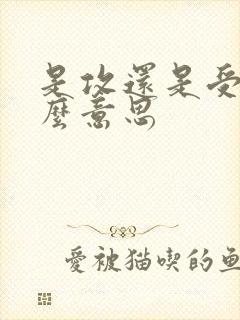 是攻還是受
麼意思
愛被猫喫的魚